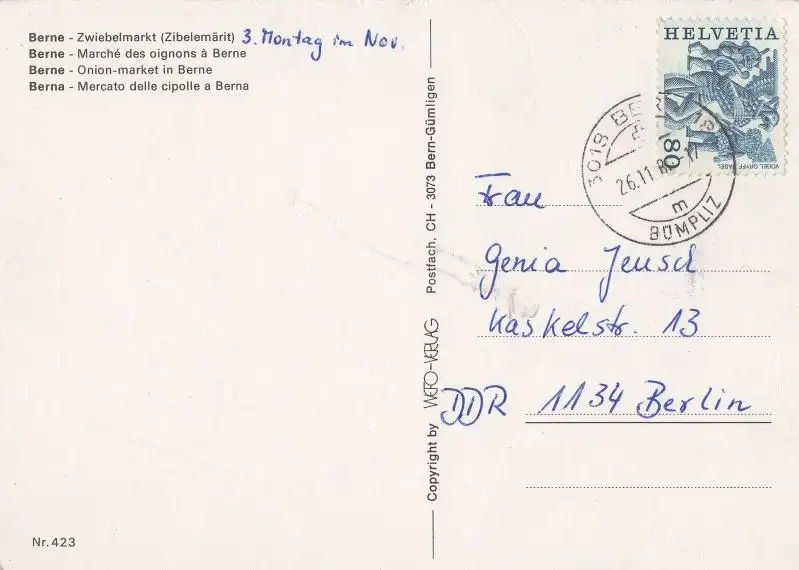 Berne - Zwiebelmarkt (Zibelemärit) 3. Montag im Nov.
Berne - Marché des oignons à Berne
Berne - Onion-market in Berne
Berna - Mercato delle cipolle a Berna
Nr. 423
Copyright by WEFO-VERLAG Postfach, CH - 3073 Bern-Gümligen
HELVETIA
80
VOGEL GRYFF BASEL
3018 BERN 18
26.11.8
-17
m
BÜMPLIZ
Frau
Genia Jeusch
Kaskelstr. 13
DDR 1134 Berlin